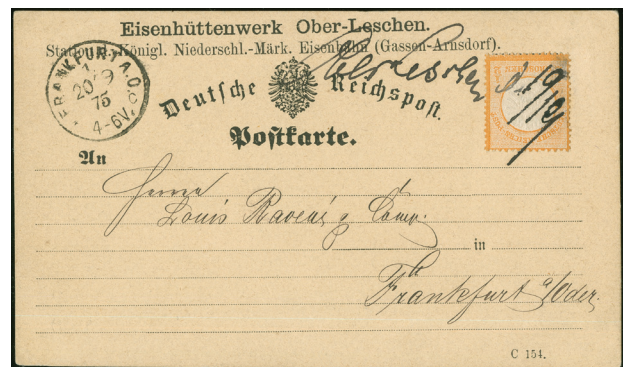 Eisenhüttenwerk Ober-Leschen.
Station d. Königl. Niederschl.-Märk. Eisenbahn (Gassen-Arnsdorf).
FRANKFURT A.O.
20 9
75
4-6V.
Deutsche Reichspost.
Ober Leschen d. 19/12
Postkarte.
An
Herren
Louis Ravené & Comp.
in
Frankfurt a/Oder.
C 154.